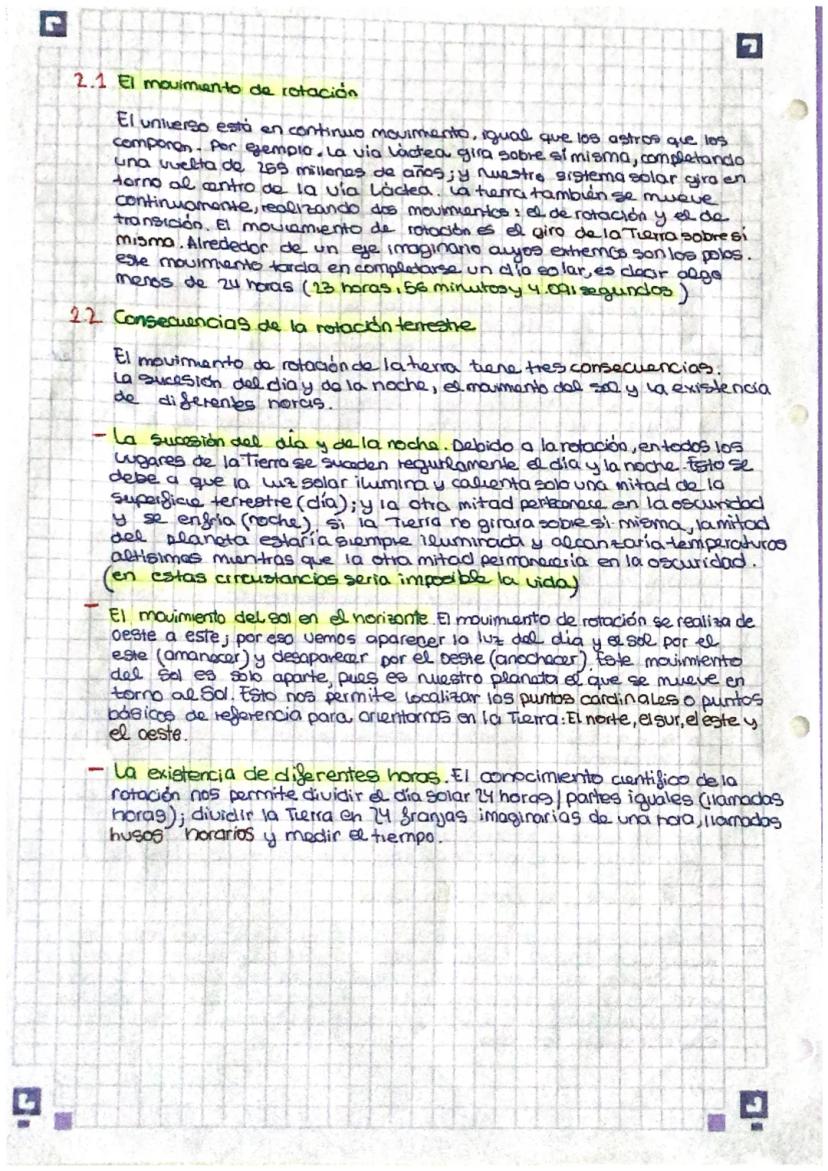 2.1 El movimiento de rotación
El universo está en continuo movimiento, igual que los astros que los
componen. Por ejemplo, la via Láctea gira sobre sí misma, completando
una vuelta de 255 millones de años; y nuestro sistema solar gira en
torno al centro de la vía Láctea. La tierra también se mueve
continuamente, realizando dos movimientos: el de rotación y el de
transición. El moviamento de rotación es el giro de la Tierra sobre sí
misma. Alrededor de un eje imaginario cuyos extremos son los polos.
este movimiento tarda en completarse un día solar, es decir algo
menos de 24 horas (23 horas, 56 minutos y 4.091 segundos)
2.2 Consecuencias de la rotación terrestre
El movimiento de rotación de la tierra tiene tres consecuencias:
La sucesión del dia y de la noche, el movimento del sol y la existencia
de diferentes horas.
- La sucesión del día y de la noche. Debido a la rotación, en todos los
lugares de la Tierra se suceden regurlamente el día y la noche. Esto se
debe a que la luz solar ilumina y calienta solo una mitad de la
superficie terrestre (día); y la otra mitad permanece en la oscuridad
y se enfría (noche). si la Tierra no girara sobre si misma, la mitad
del planeta estaría siempre iluminada y alcanzaría temperaturas
altísimas mientras que la otra mitad permanecería en la oscuridad.
(en estas circustancias seria imposible la vida)
- El movimiento del sol en el horizonte. El movimiento de rotación se realiza de
oeste a este; por eso vemos aparecer la luz del día y el sol por el
este (amanecer) y desaparecer por el oeste (anochecer). Este movimiento
del Sol es solo aparte, pues es nuestro planeta el que se mueve en
torno al Sol. Esto nos permite localizar los puntos cardinales o puntos
básicos de referencia para orientarnos en la Tierra: El norte, el sur, el este y
el oeste.
- La existencia de diferentes horas. El conocimiento cientifico de la
rotación nos permite dividir el día solar 24 horas / partes iguales (llamadas
horas); dividir la Tierra en 24 franjas imaginarias de una hora, llamadas
husos horarios y medir el tiempo.